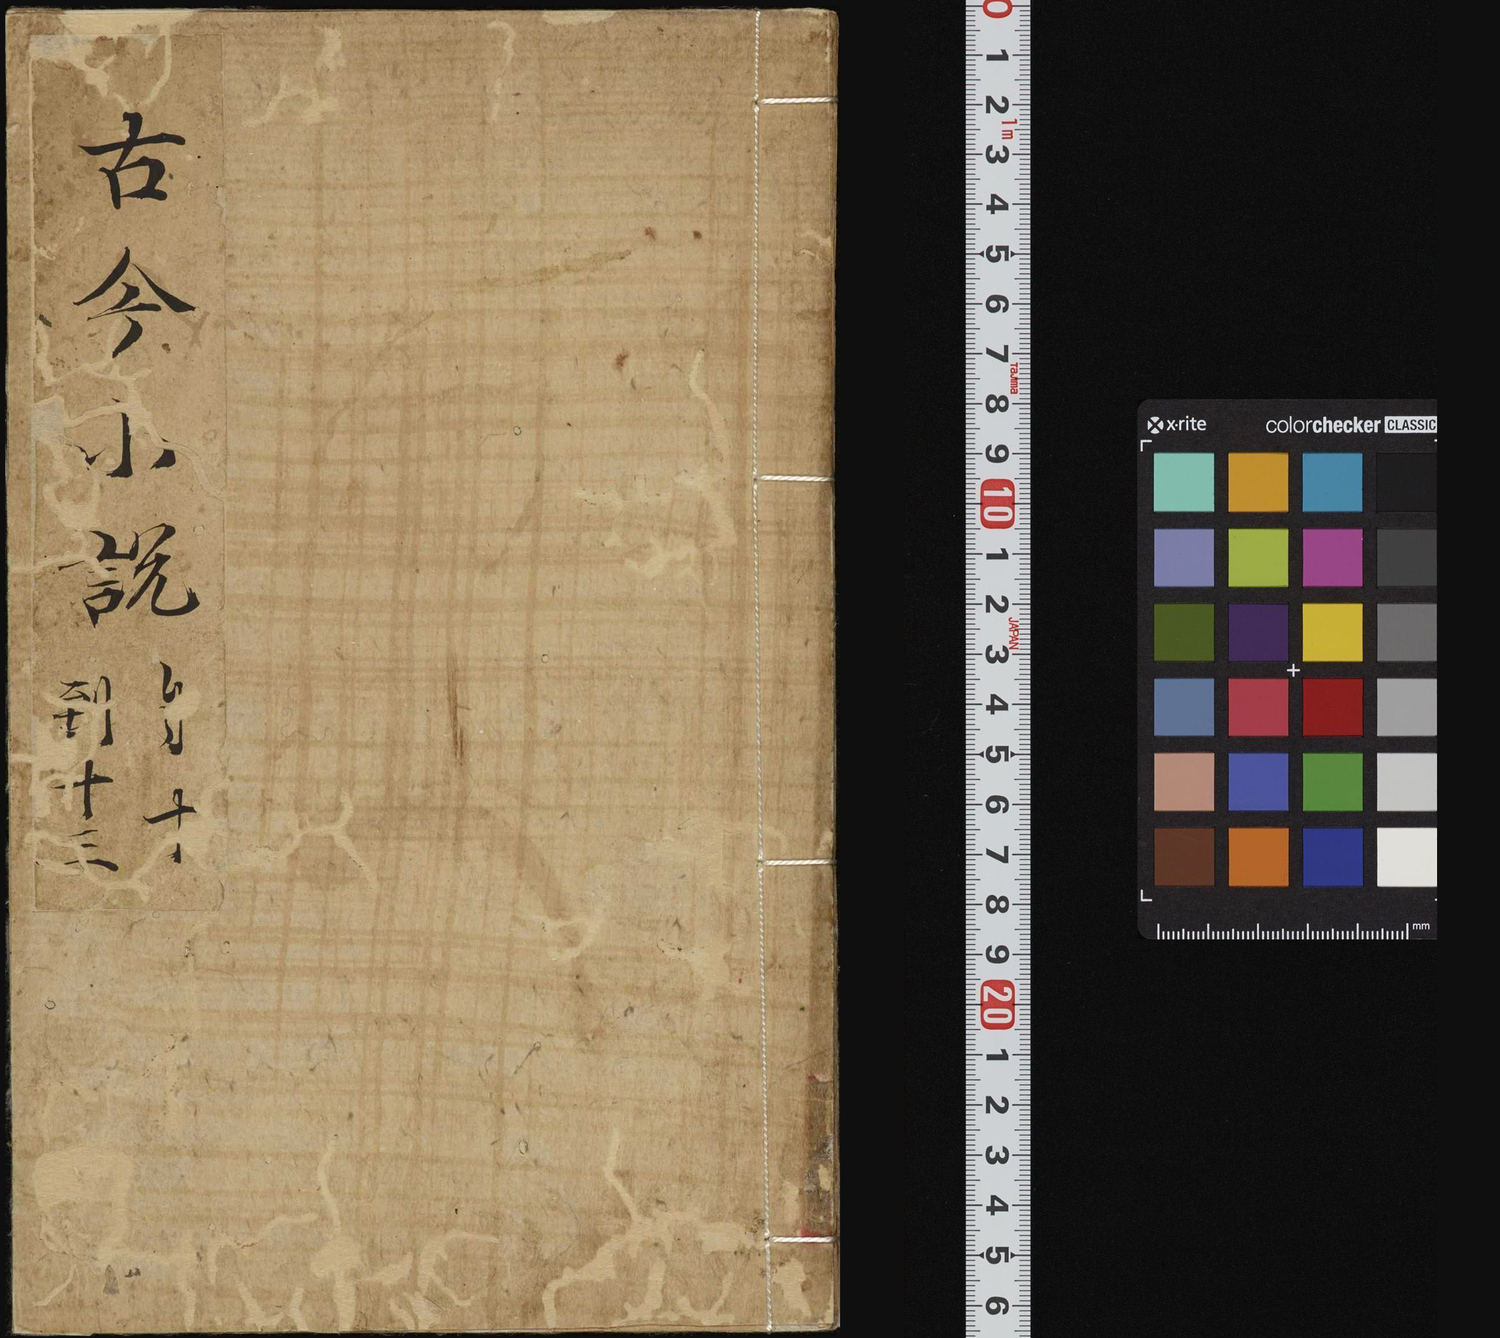 古今小説
自十一
到十三
0
1
2
1m
3
4
5
6
7
Tajima
8
9
10
1
2
JAPAN
3
4
5
6
7
8
9
20
1
2
3
4
5
6
x·rite
colorchecker CLASSIC
mm